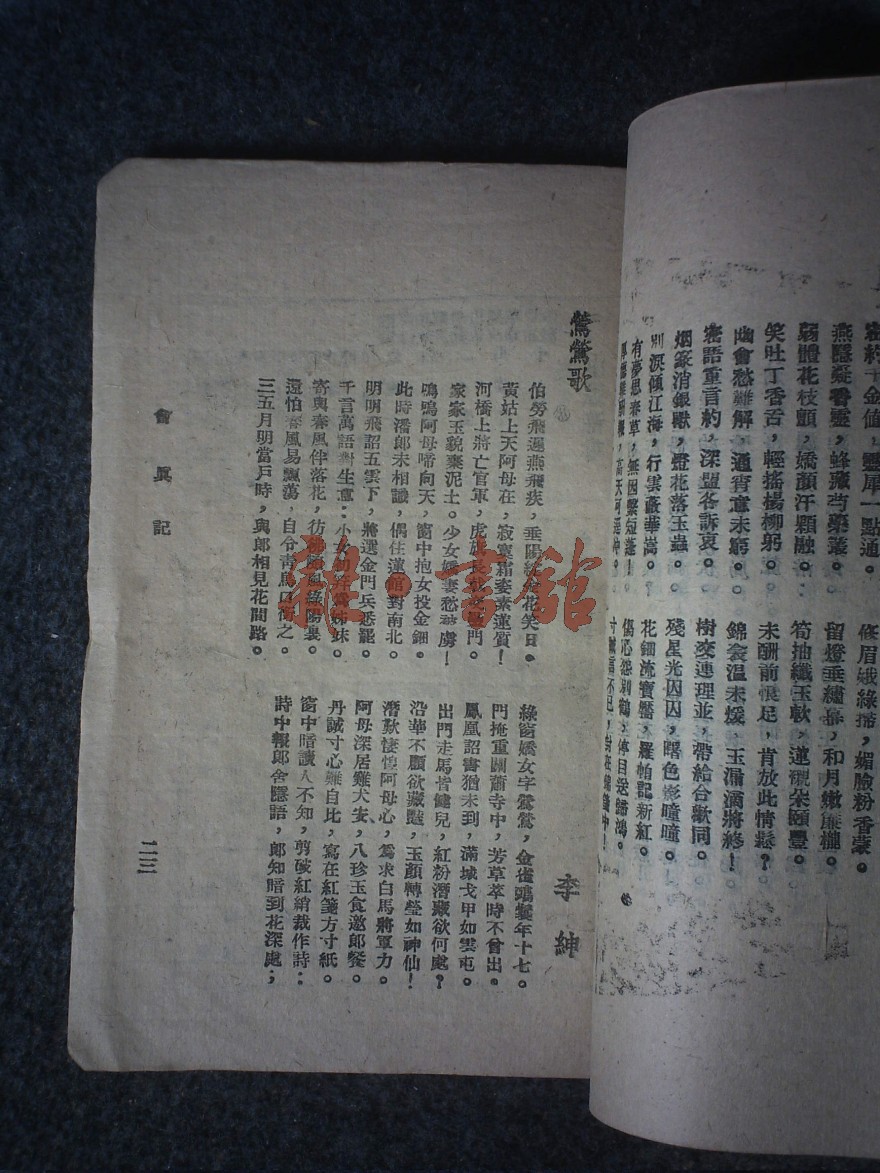 密約千金值，靈犀一點通。　修眉娥綠掃，媚臉粉香蒙。
燕隱凝香壘，蜂藏芍藥叢。　留燈垂繡幕，和月嫩簾櫳。
弱體花枝顫，嬌顏汗顆融。　筍抽纖玉軟，蓮襯朵頤豐。
笑吐丁香舌，輕搖楊柳躬。　未酬前恨足，肯放此情鬆？
幽會愁難解，通宵意未窮。　錦衾溫未煖，玉漏滴將終！
密語重言約，深盟各訴衷。　樹交連理並，帶結合歡同。
烟篆消銀獸，燈花落玉蟲。　殘星光囧囧，曙色影曈曈。
別淚傾江海，行雲蔽華嵩。　花鈿淹寶靨，羅帕記新紅。
有夢思春草，無因繫短蓬！　傷心怨別鶴，停目送歸鴻。
鶯鶯歌　李紳
伯勞飛遲燕飛疾，垂陽綻金花笑日。　綠窗嬌女字鶯鶯，金雀鴉鬟年十七。
黃姑上天阿母在，寂寞霜姿素蓮質！　門掩重關蕭寺中，芳草萃時不曾出。
河橋上將亡官軍，虎旗長戟交壘門。　鳳凰詔書猶未到，滿城戈甲如雲屯。
家家玉貌棄泥土。少女嬌妻愁被虜！　出門走馬皆健兒，紅粉潛藏欲何處？
嗚嗚阿母啼向天，窗中抱女投金鈿。　沿華不顧欲藏豔，玉顏轉瑩如神仙！
此時潘郎未相識，偶住蓮館對南北。　潛歎悽惶阿母心，為求白馬將軍力。
明明飛詔五雲下，將選金門兵悉罷。　阿母深居雞犬安，八珍玉食邀郎餐。
千言萬語對生意：小女初笄為姊妹。　丹誠寸心難自比，寫在紅箋方寸紙。
寄與春風伴落花，彷彿隨風綠陽裊。　窗中暗讀人不知，剪破紅綃裁作詩：
還怕春風易飄蕩，自令青鳥口銜之。　詩中報郎含隱語，郎知暗到花深處；
三五月明當戸時，與郎相見花間路。
會真記
二三
雜·書館